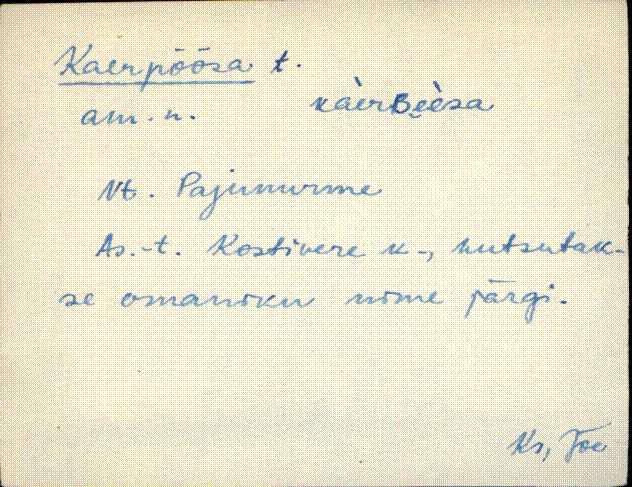 Kaerpõõsa t.
am. n. kàerʙe̮è̮sa
Vt. Pajunurme
As.-t. Kostivere k-, kutsutak-
se omaniku nime järgi.
Ks, Joe